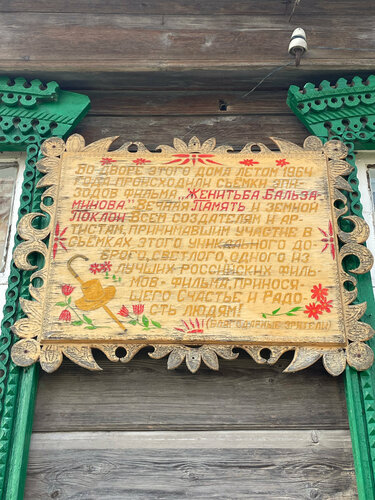 Во дворе этого дома летом 1964
года происходили съёмки эпи-
зодов фильма „Женитьба Бальза-
минова". Вечная память
поклон всем создателям и ар-
тистам, принимавшим участие в
съёмках этого уникального до-
брого, светлого, одного из
лучших российских филь-
мов – фильма, принося
щего счастье и радо
сть людям!
(Благодарные зрители)